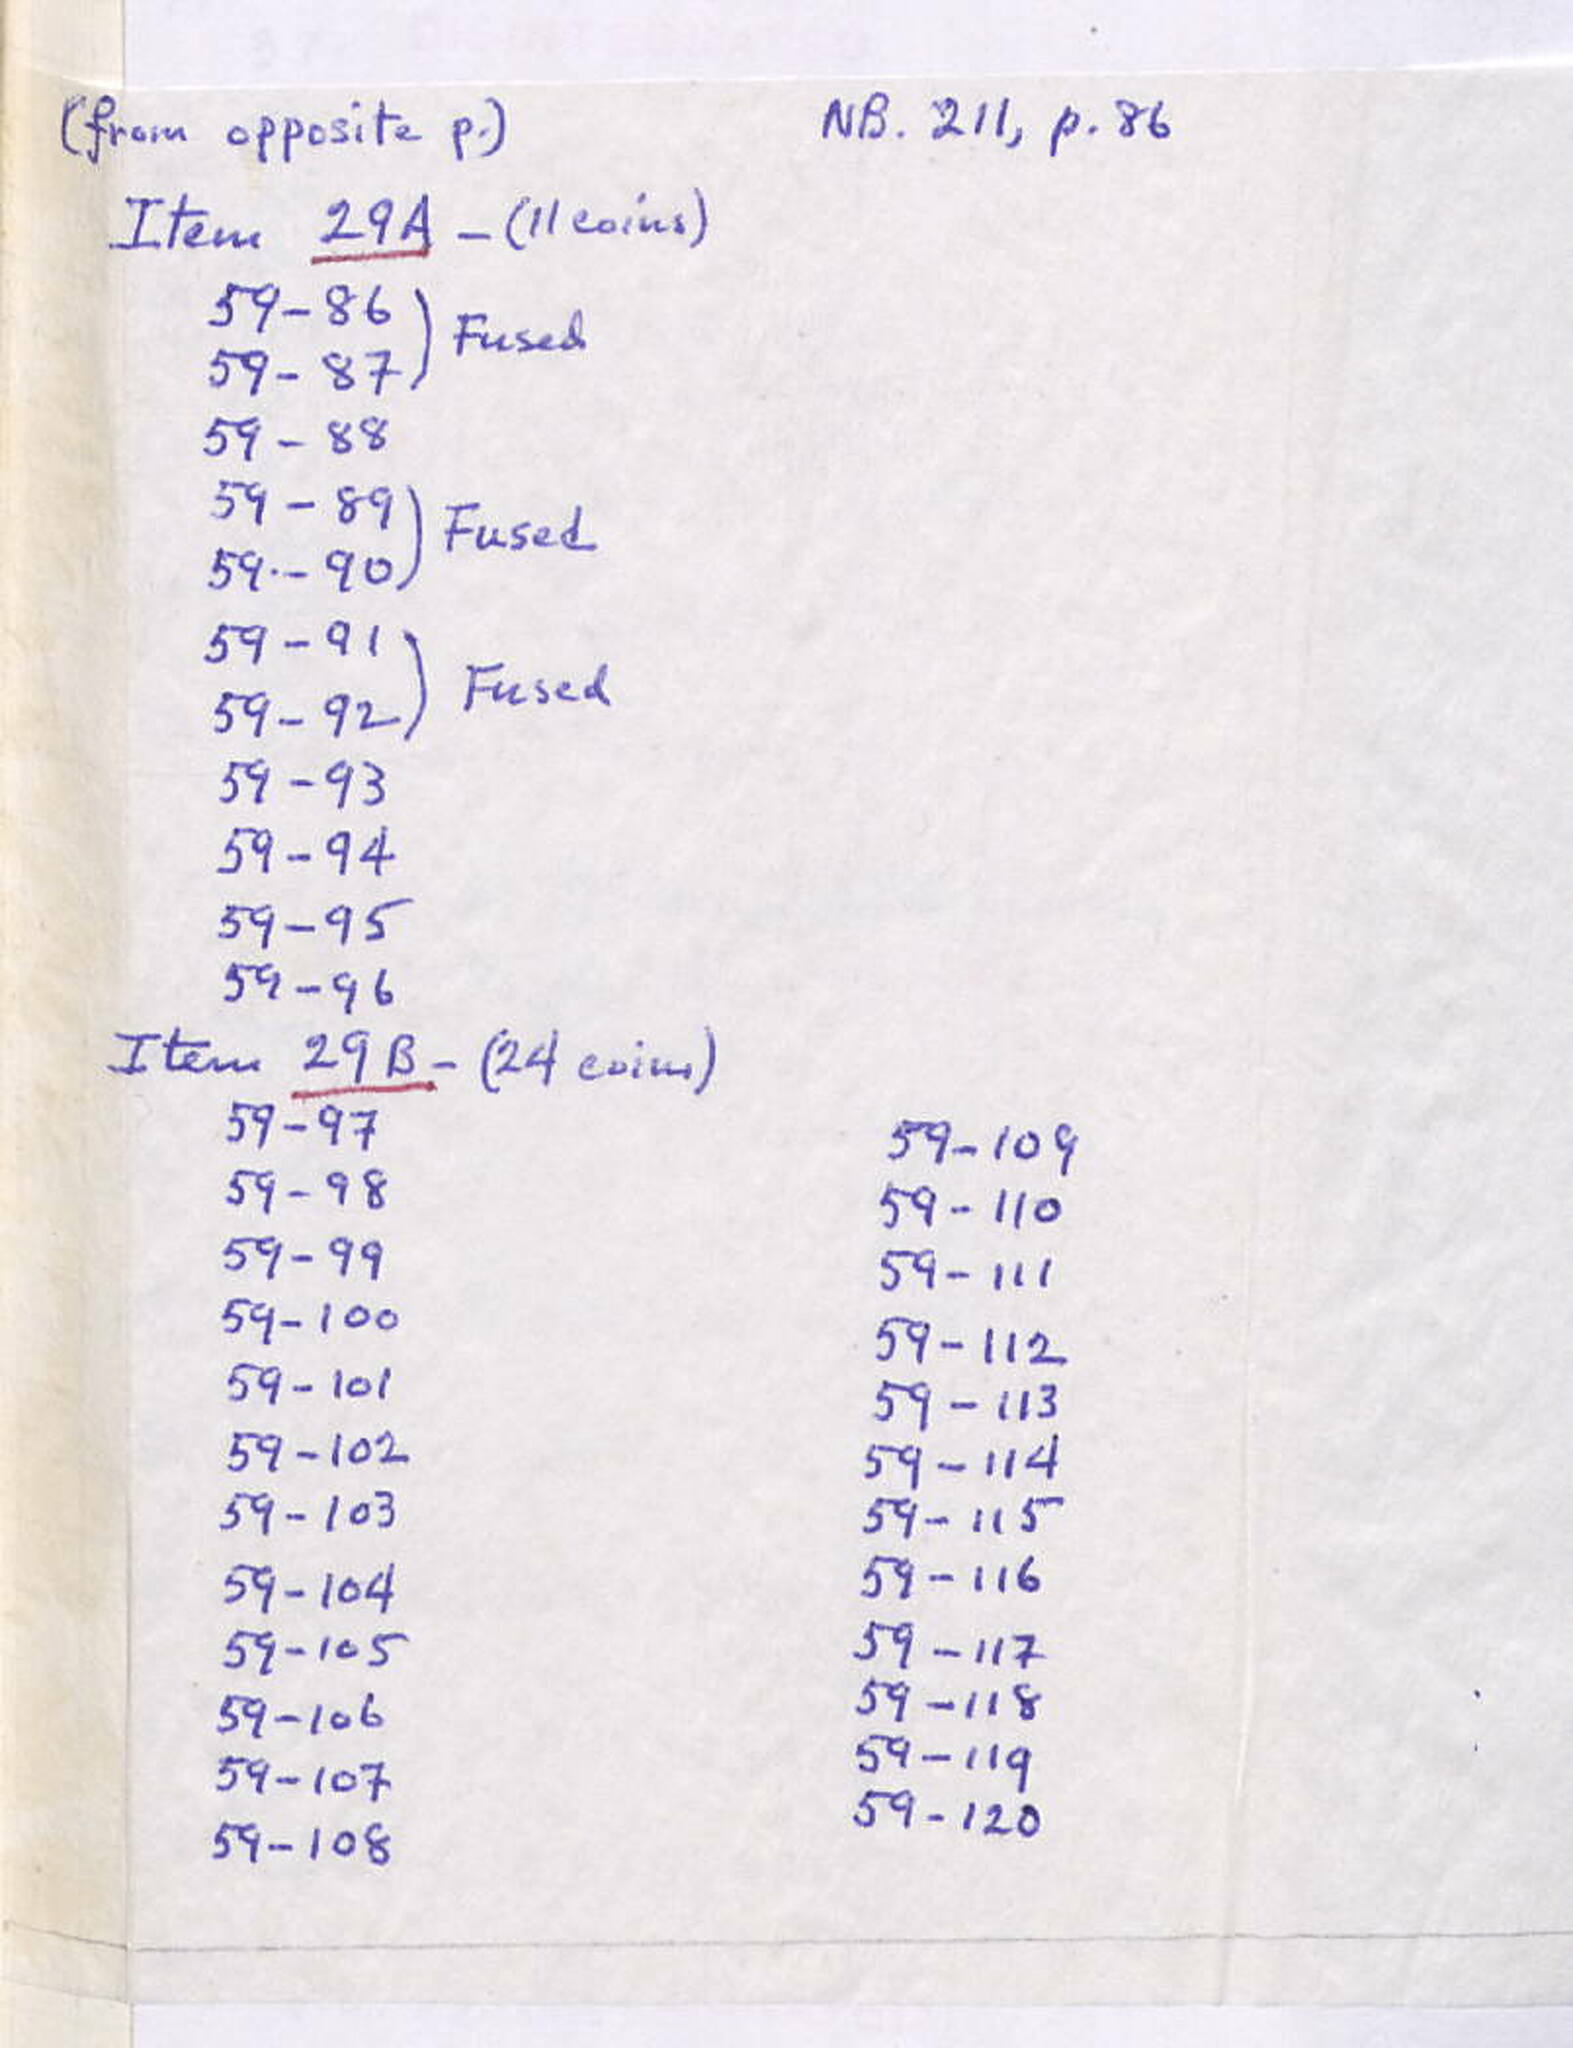 (from opposite p.) NB. 211, p. 86
Item 29A – (11 coins)
59–86
59–87 ) Fused
59–88
59–89
59–90 ) Fused
59–91
59–92 ) Fused
59–93
59–94
59–95
59–96
Item 29B – (24 coins)
59–97
59–98
59–99
59–100
59–101
59–102
59–103
59–104
59–105
59–106
59–107
59–108
59–109
59–110
59–111
59–112
59–113
59–114
59–115
59–116
59–117
59–118
59–119
59–120